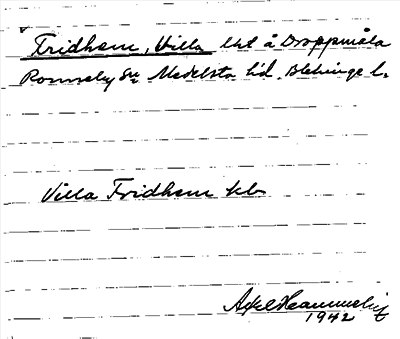 Fridhem, Villa lht å Droppmåla
Ronneby Sn Medelsta hd. Blekinge l.
Villa Fridhem lcb
Axel
1942